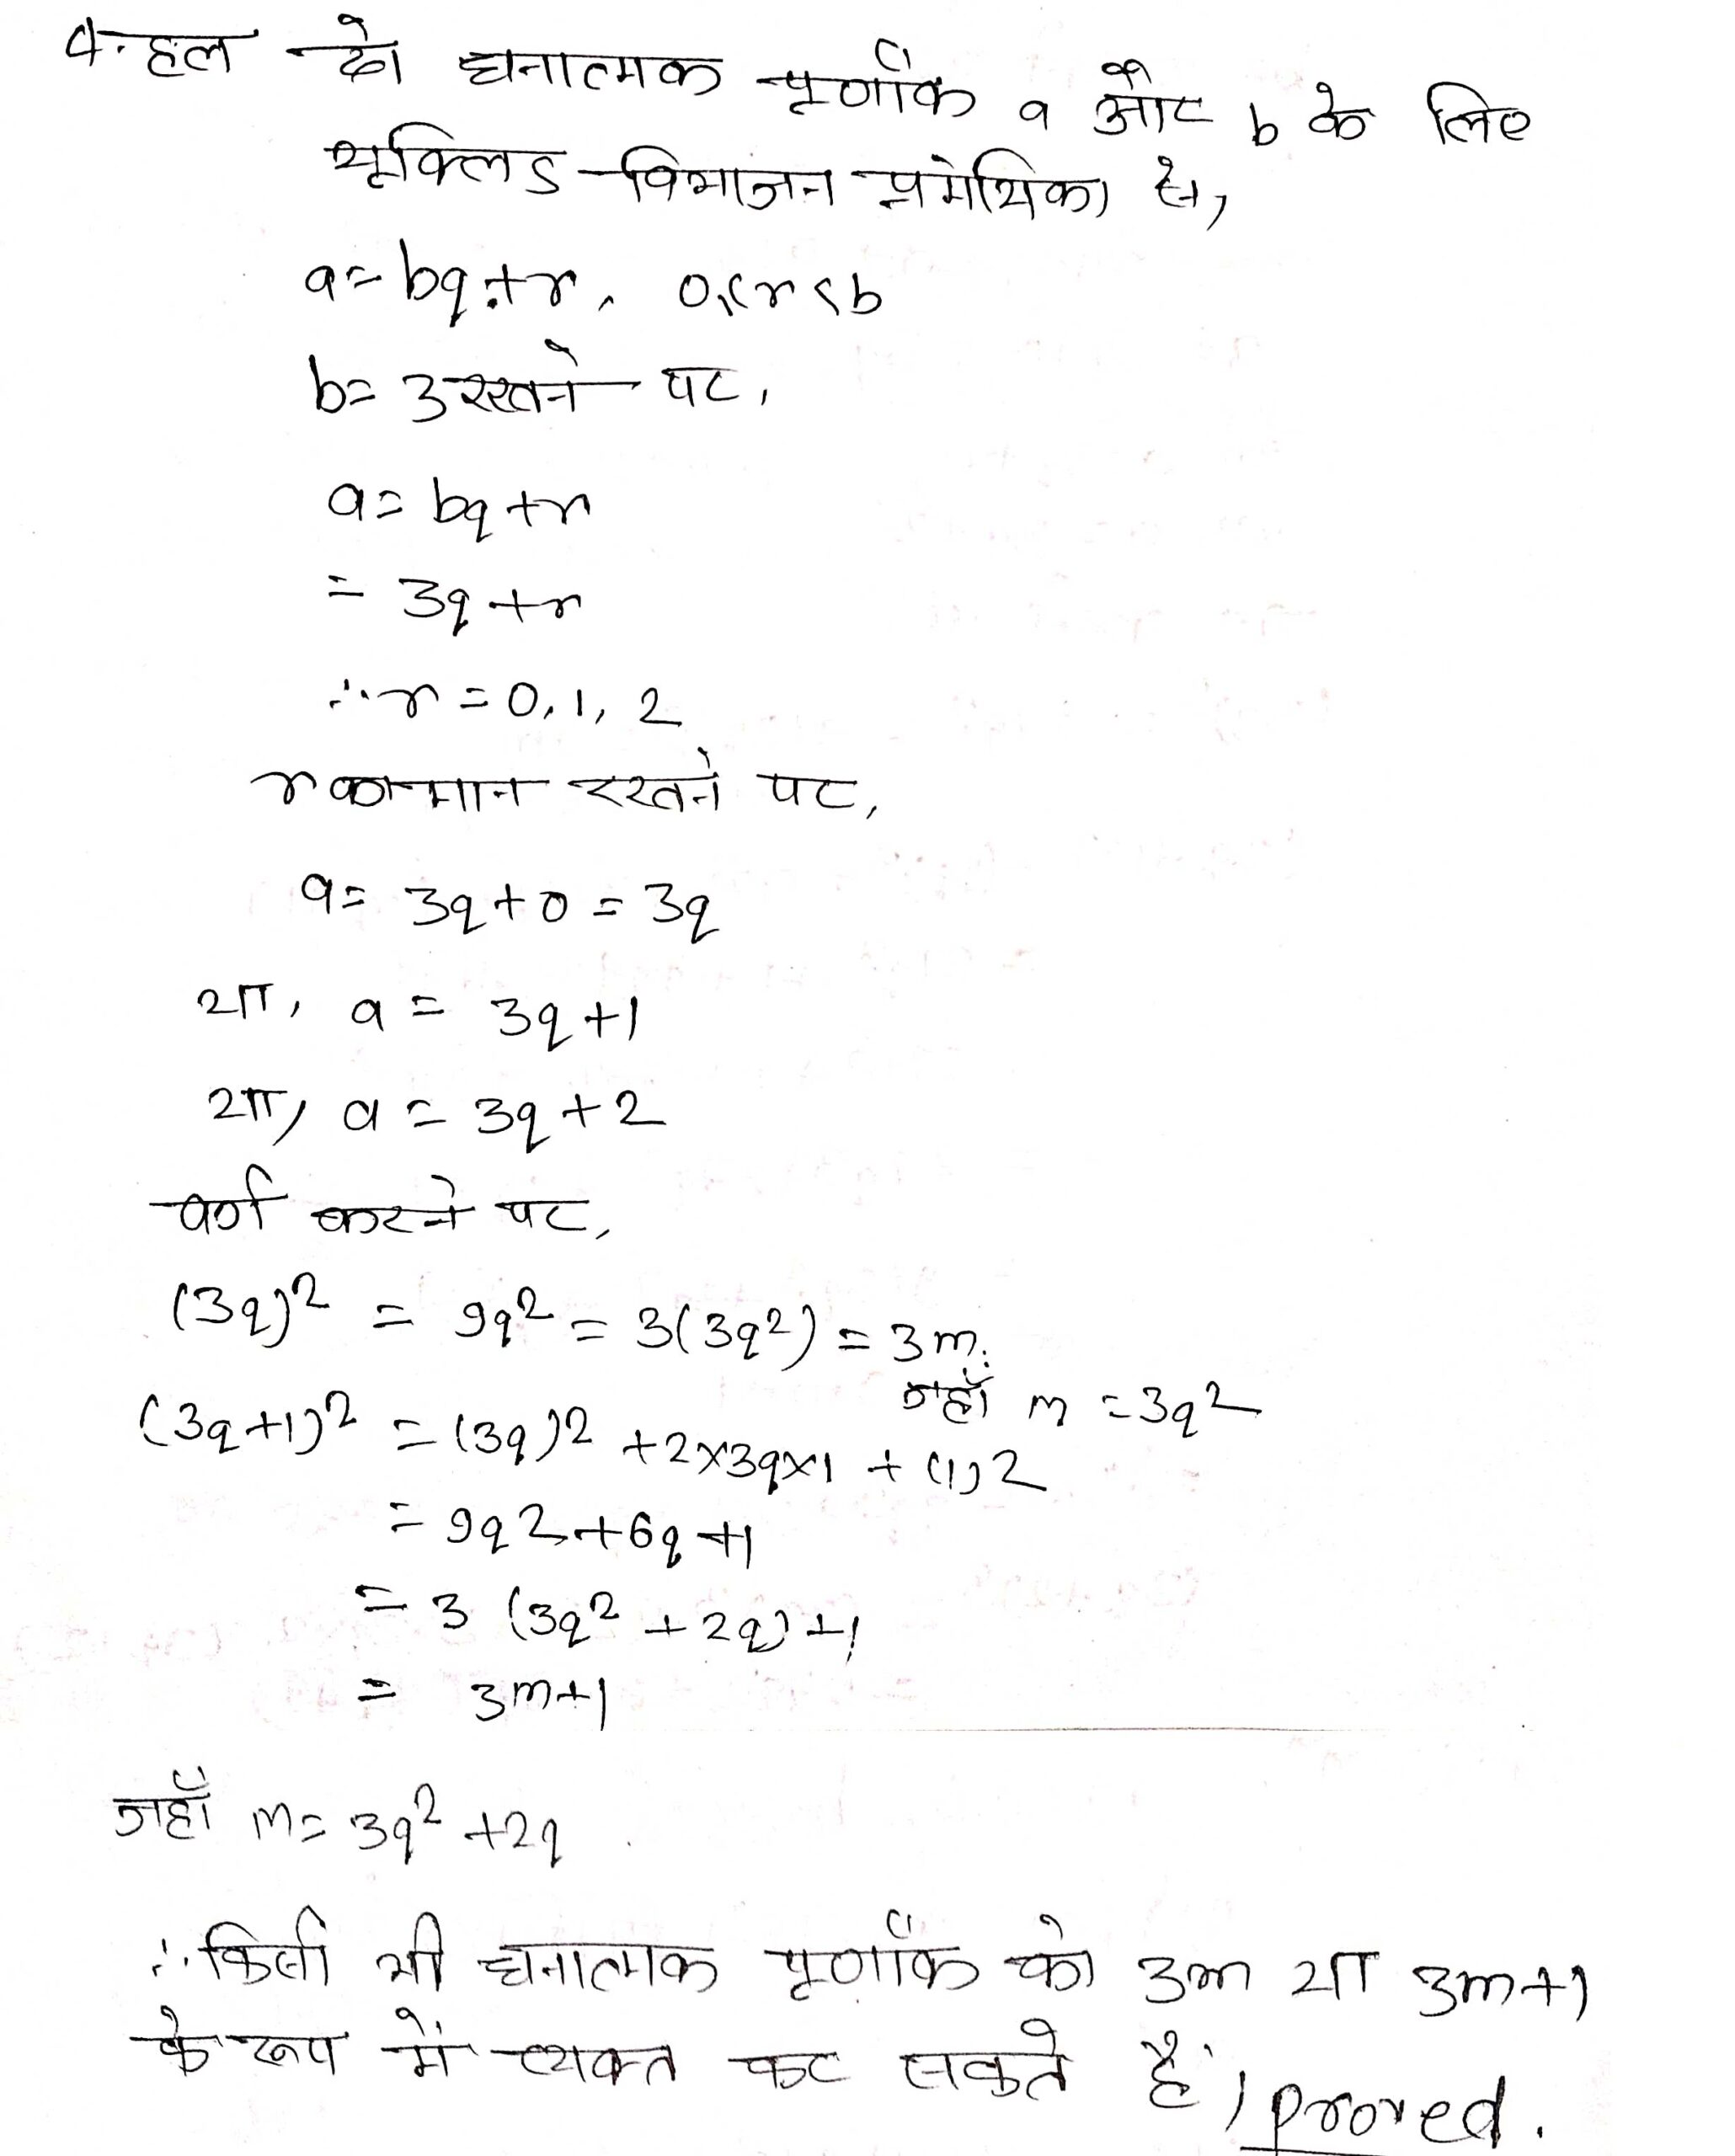 4. हल दो धनात्मक पूर्णांक a और b के लिए
यूक्लिड विभाजन प्रमेयिका से,
a = bq + r, 0 ≤ r < b
b = 3 रखने पर,
a = bq + r
= 3q + r
∴ r = 0, 1, 2
r का मान रखने पर,
a = 3q + 0 = 3q
या, a = 3q + 1
या, a = 3q + 2
वर्ग करने पर,
(3q)² = 9q² = 3(3q²) = 3m.
जहाँ m = 3q²
(3q+1)² = (3q)² + 2×3q×1 + (1)²
= 9q² + 6q + 1
= 3 (3q² + 2q) + 1
= 3m+1
जहाँ m = 3q² + 2q
∴ किसी भी धनात्मक पूर्णांक को 3m या 3m+1
के रूप में व्यक्त कर सकते हैं, proved.